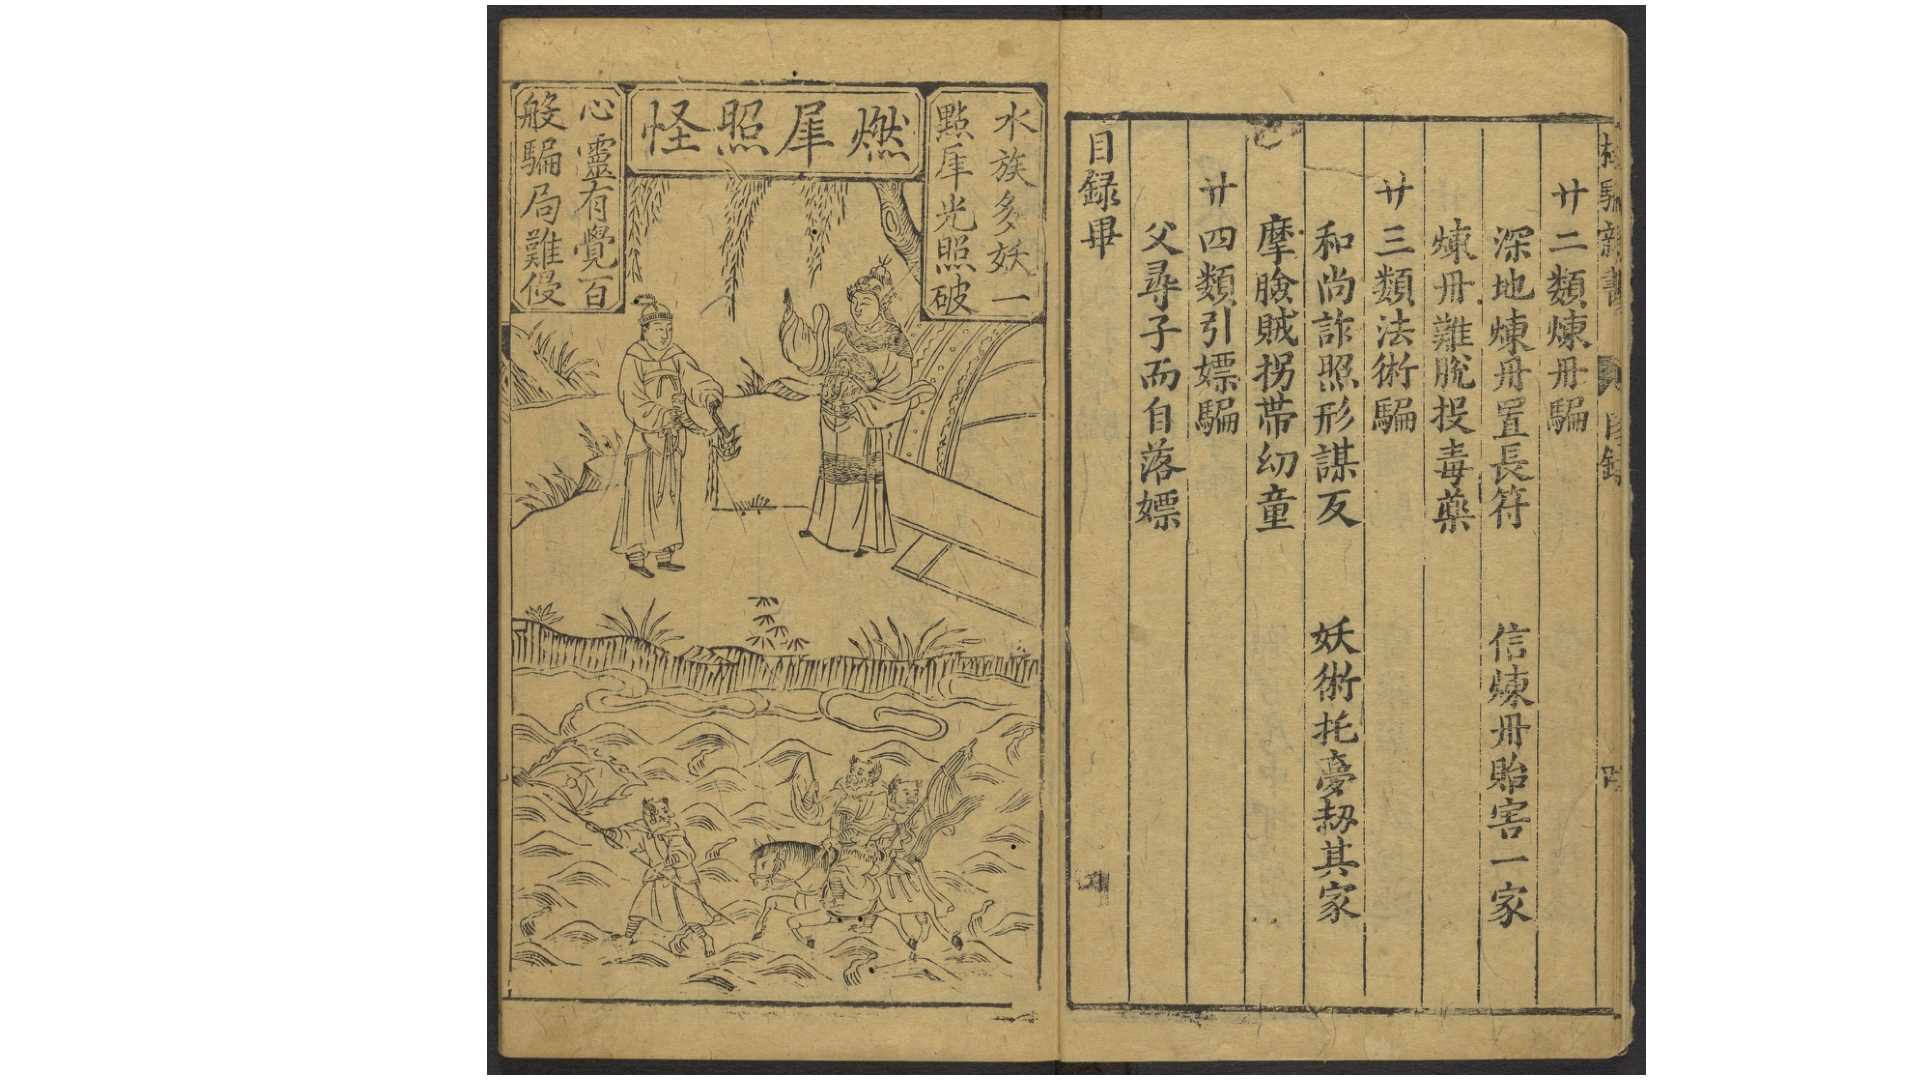 杜騙新書
目録
廿二類煉丹騙
深地煉丹置長符 信煉丹貽害一家
煉丹難脫投毒藥
廿三類法術騙
和尚詐照形謀反 妖術托夢刼其家
摩臉賊拐帶幼童
廿四類引嫖騙
父尋子而自落嫖
目録畢
水族多妖一
點犀光照破
燃犀照怪
心靈有覺百
般騙局難侵